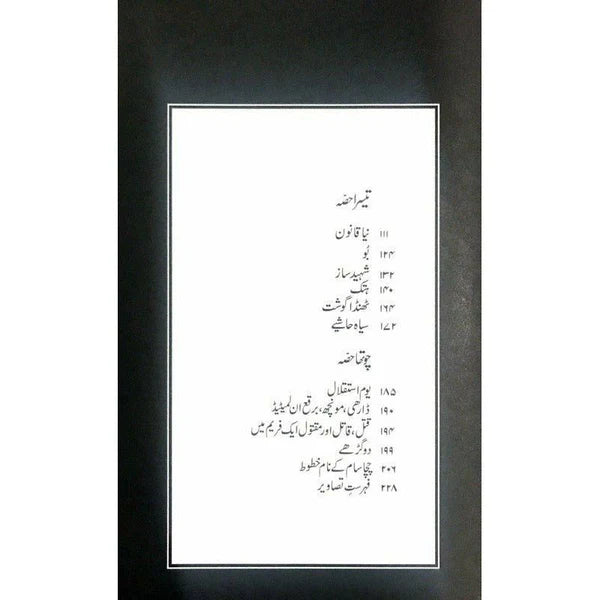 تیسرا حصّہ
۱۱۱ نیا قانون
۱۲۴ بُو
۱۳۲ شہید ساز
۱۴۰ ہتک
۱۶۴ ٹھنڈا گوشت
۱۷۲ سیاہ حاشیے
چوتھا حصّہ
۱۸۵ یومِ استقلال
۱۹۰ ڈارھی، مونچھ، برقع ان لمیٹیڈ
۱۹۴ قتل، قاتل اور مقتول ایک فریم میں
۱۹۹ دو گڑھے
۲۰۶ چچا سام کے نام خطوط
۲۲۸ فہرستِ تصاویر